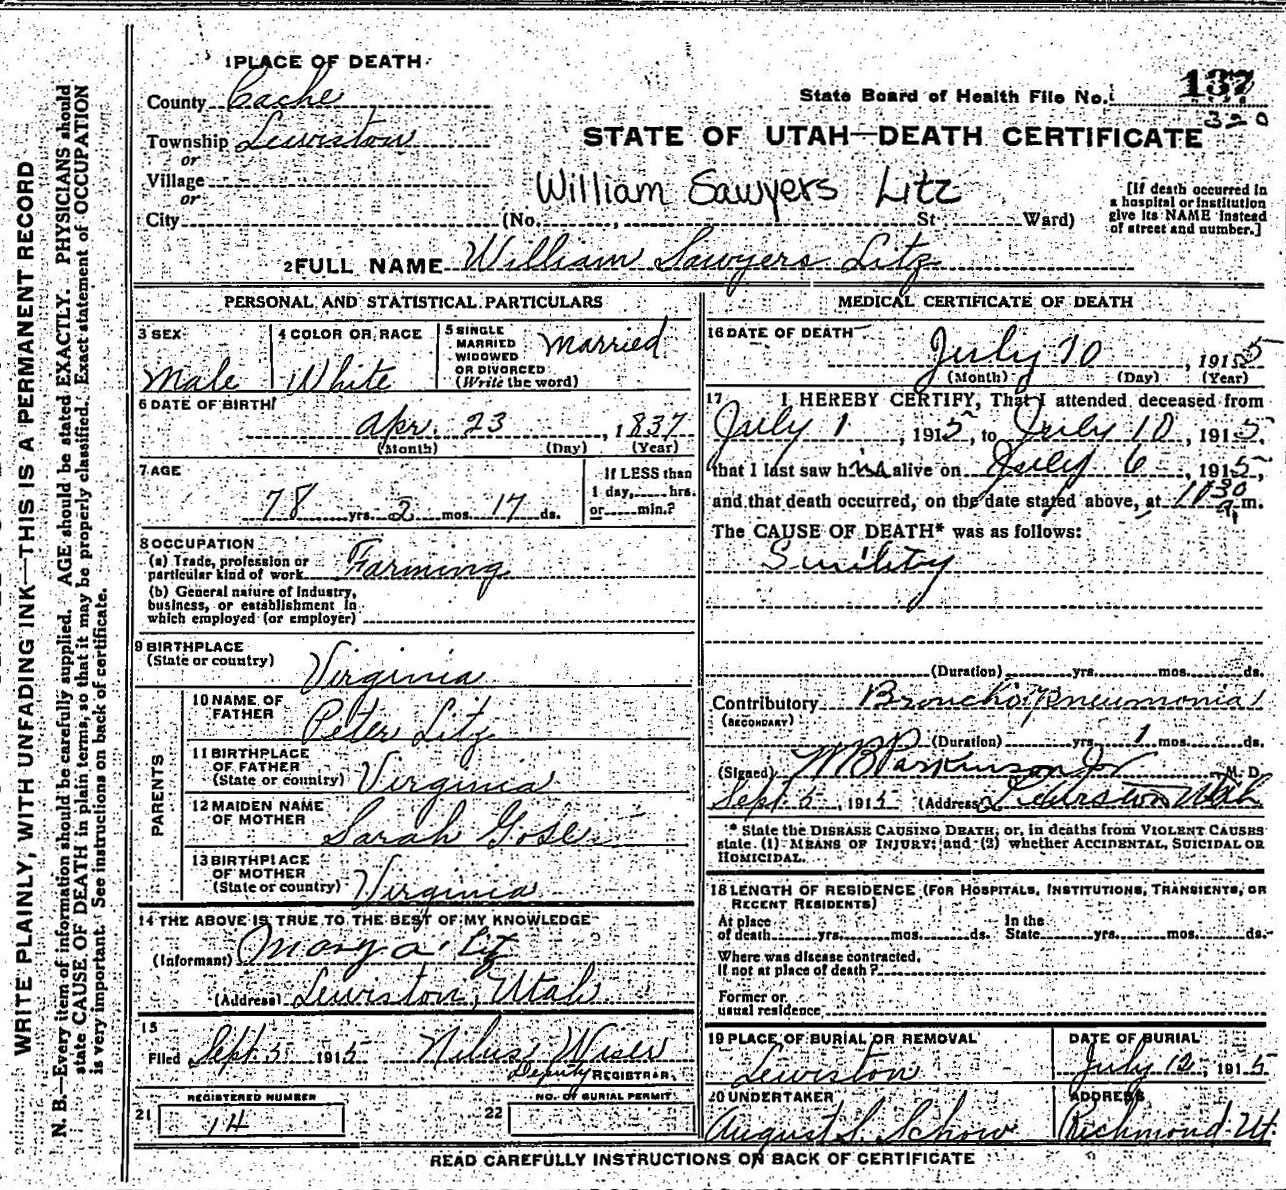 WRITE PLAINLY, WITH UNFADING INK—THIS IS A PERMANENT RECORD
N. B.—Every item of information should be carefully supplied. AGE should be stated EXACTLY. PHYSICIANS should
state CAUSE OF DEATH in plain terms, so that it may be properly classified. Exact statement of OCCUPATION
is very important. See instructions on back of certificate.
1 PLACE OF DEATH
County Cache
Township Lewiston
or
Village
or
City (No. , St. Ward)
State Board of Health File No. 137
320
STATE OF UTAH—DEATH CERTIFICATE
William Sawyers Litz
[If death occurred in
a hospital or institution
give its NAME instead
of street and number.]
2 FULL NAME William Sawyers Litz
PERSONAL AND STATISTICAL PARTICULARS
3 SEX
Male
4 COLOR OR RACE
White
5 SINGLE
MARRIED
WIDOWED
OR DIVORCED
(Write the word)
Married
6 DATE OF BIRTH
Apr. 23, 1837
(Month) (Day) (Year)
7 AGE
78 yrs. 2 mos. 17 ds.
If LESS than
1 day, hrs.
or min.?
8 OCCUPATION
(a) Trade, profession or
particular kind of work Farming
(b) General nature of industry,
business, or establishment in
which employed (or employer)
9 BIRTHPLACE
(State or country) Virginia
PARENTS
10 NAME OF
FATHER Peter Litz
11 BIRTHPLACE
OF FATHER
(State or country) Virginia
12 MAIDEN NAME
OF MOTHER Sarah Gose
13 BIRTHPLACE
OF MOTHER
(State or country) Virginia
14 THE ABOVE IS TRUE TO THE BEST OF MY KNOWLEDGE
(Informant) Mary A. Litz
(Address) Lewiston, Utah
15
Filed Sept. 5 1915 Wiser
Deputy REGISTRAR
REGISTERED NUMBER
21 14
NO. OF BURIAL PERMIT
22
MEDICAL CERTIFICATE OF DEATH
16 DATE OF DEATH
July 10, 1915
(Month) (Day) (Year)
17 I HEREBY CERTIFY, That I attended deceased from
July 1, 1915, to July 10, 1915,
that I last saw him alive on July 6, 1915,
and that death occurred, on the date stated above, at 1130 a. m.
The CAUSE OF DEATH* was as follows:
Sinility
(Duration) yrs. mos. ds.
Contributory Broncho Pneumonia
(SECONDARY)
(Duration) yrs. 1 mos. ds.
(Signed) WB Parkinson Jr M. D.
Sept. 5, 1915 (Address) Lewiston Utah
* State the DISEASE CAUSING DEATH; or, in deaths from VIOLENT CAUSES
state (1) MEANS OF INJURY; and (2) whether ACCIDENTAL, SUICIDAL OR
HOMICIDAL.
18 LENGTH OF RESIDENCE (FOR HOSPITALS, INSTITUTIONS, TRANSIENTS, OR
RECENT RESIDENTS)
At place In the
of death yrs. mos. ds. State yrs. mos. ds.
Where was disease contracted,
if not at place of death?
Former or
usual residence
19 PLACE OF BURIAL OR REMOVAL
Lewiston
DATE OF BURIAL
July 12, 1915
20 UNDERTAKER
August S Schow
ADDRESS
Richmond Ut.
READ CAREFULLY INSTRUCTIONS ON BACK OF CERTIFICATE